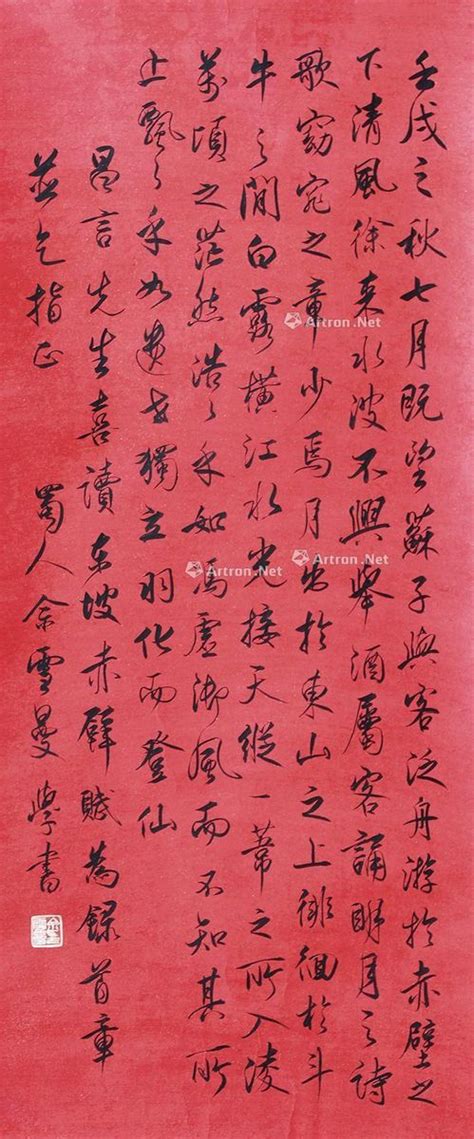 壬戌之秋七月既望蘇子與客泛舟游於赤壁之
下清風徐来水波不興舉酒屬客誦明月之詩
歌窈窕之章少焉月出於東山之上徘徊於斗
牛之間白露橫江水光接天縱一葦之所入凌
萬頃之茫然浩〻乎如馮虛御風而不知其所
止飄〻乎如遺世獨立羽化而登仙
昌言先生喜讀东坡赤壁賦為錄首章
並乞指正
蜀人余雪曼學書
Artron.Net
Artron.Net
Artron.Net